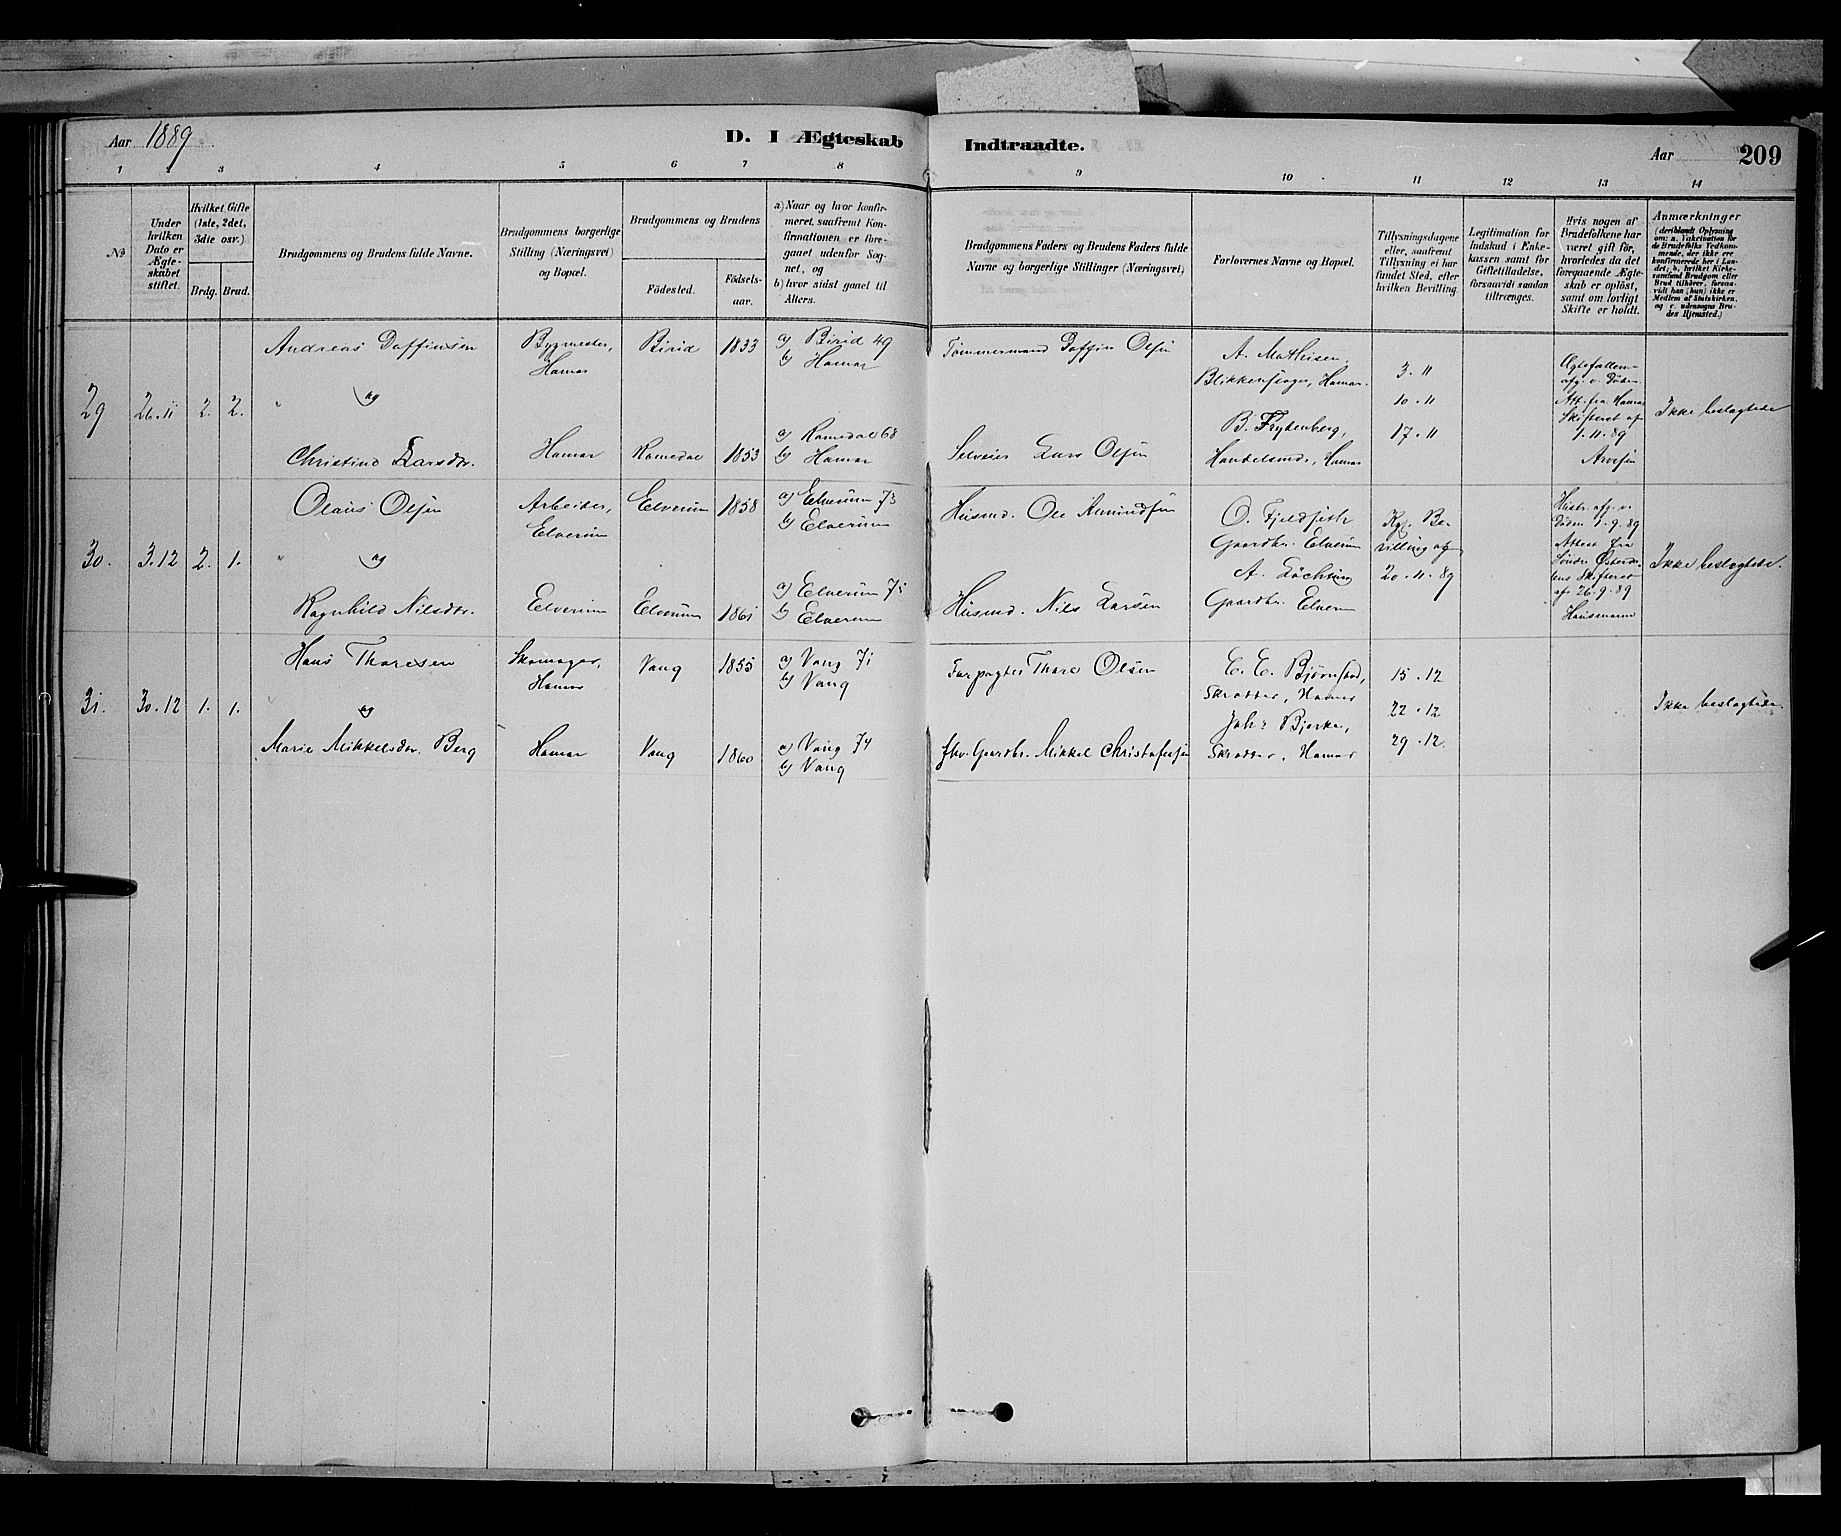 Aar 1889
D. I Ægteskab Indtraadte.
Aar 209
1 2 3 4 5 6 7 8 9 10 11 12 13 14
No
Under hvilken Dato er Ægteskabet stiftet.
Hvilket Gifte (1ste, 2det, 3die osv.)
Brdg. Brud.
Brudgommens og Brudens fulde Navne.
Brudgommens borgerlige Stilling (Næringsvei) og Bopæl.
Brudgommens og Brudens
Födested.
Födsels-aar.
a) Naar og hvor konfirmeret, saafremt Konfirmationen er foregaaet udenfor Sognet, og
b) hvor sidst gaaet til Alters.
Brudgommens Faders og Brudens Faders fulde Navne og borgerlige Stillinger (Næringsvei)
Forlovernes Navne og Bopæl.
Tillysningsdagene eller, saafremt Tillysning ei har fundet Sted, efter hvilken Bevilling.
Legitimation for Indskud i Enkekassen samt for Giftetilladelse, forsaavidt saadan tiltrænges.
Hvis nogen af Brudefolkene har været gift för, hvorledes da det foregaaende Ægteskab er oplöst, samt om lovligt Skifte er holdt.
Anmærkninger (deriblandt Oplysning om: a. Vakcination for de Brudefolks Vedkommende, der ikke ere konfirmerede her i Landet; b. hvilket Kirkesamfund Brudgom eller Brud tilhörer, forsaavidt han (hun) ikke er Medlem af Statskirken, og c. udensogns Brudes Hjemsted.)
29 26.11 2. 2.
Andreas Daffinsen
og
Christine Larsdr.
Bygmester,
Hamar
Hamar
Birid 1833
Romedal 1853
a) Birid 49
b) Hamar
a) Romedal 68
b) Hamar
Tømmermand Daffin Olsen
Selveier Lars Olsen
A. Mathisen,
Blikkenslager, Hamar.
B. Frydenberg,
Handelsmd., Hamar
3.11
10.11
17.11
afg. v. Döden.
Att. fra Hamar
Skifteret af
1.11.89
Ikke beslægtede
30. 3.12 2. 1.
Olaus Olsen
og
Ragnhild Nilsdr.
Arbeider,
Elverum
Elverum
Elverum 1858
Elverum 1861
a) Elverum 73
b) Elverum
a) Elverum 75
b) Elverum
Husmd. Ole Amundsen
Husmd. Nils Larsen
O. Fjeldseth
Gaardbr. Elverum
Gaardbr. Elverum
Kgl. Bevilling af
20.11.89
Hustr. afg. v.
Döden 1.9.89
Attest fra
Söndre Österdalens Skifteret
af 26.9.89
Hausmann
Ikke beslægtede.
31. 30.12 1. 1.
Hans Thoresen
og
Marie Mikkelsdr. Berg
Skomager,
Hamar
Hamar
Vang 1855
Vang 1860
a) Vang 71
b) Vang
a) Vang 74
b) Vang
Forpagter Thore Olsen
fhv. Gaardbr. Mikkel Christofersen
E. E. Bjørnstad,
Skrædder, Hamar
Johs Bjerke,
Skrædder, Hamar
15.12
22.12
29.12.
Ikke beslægtede.